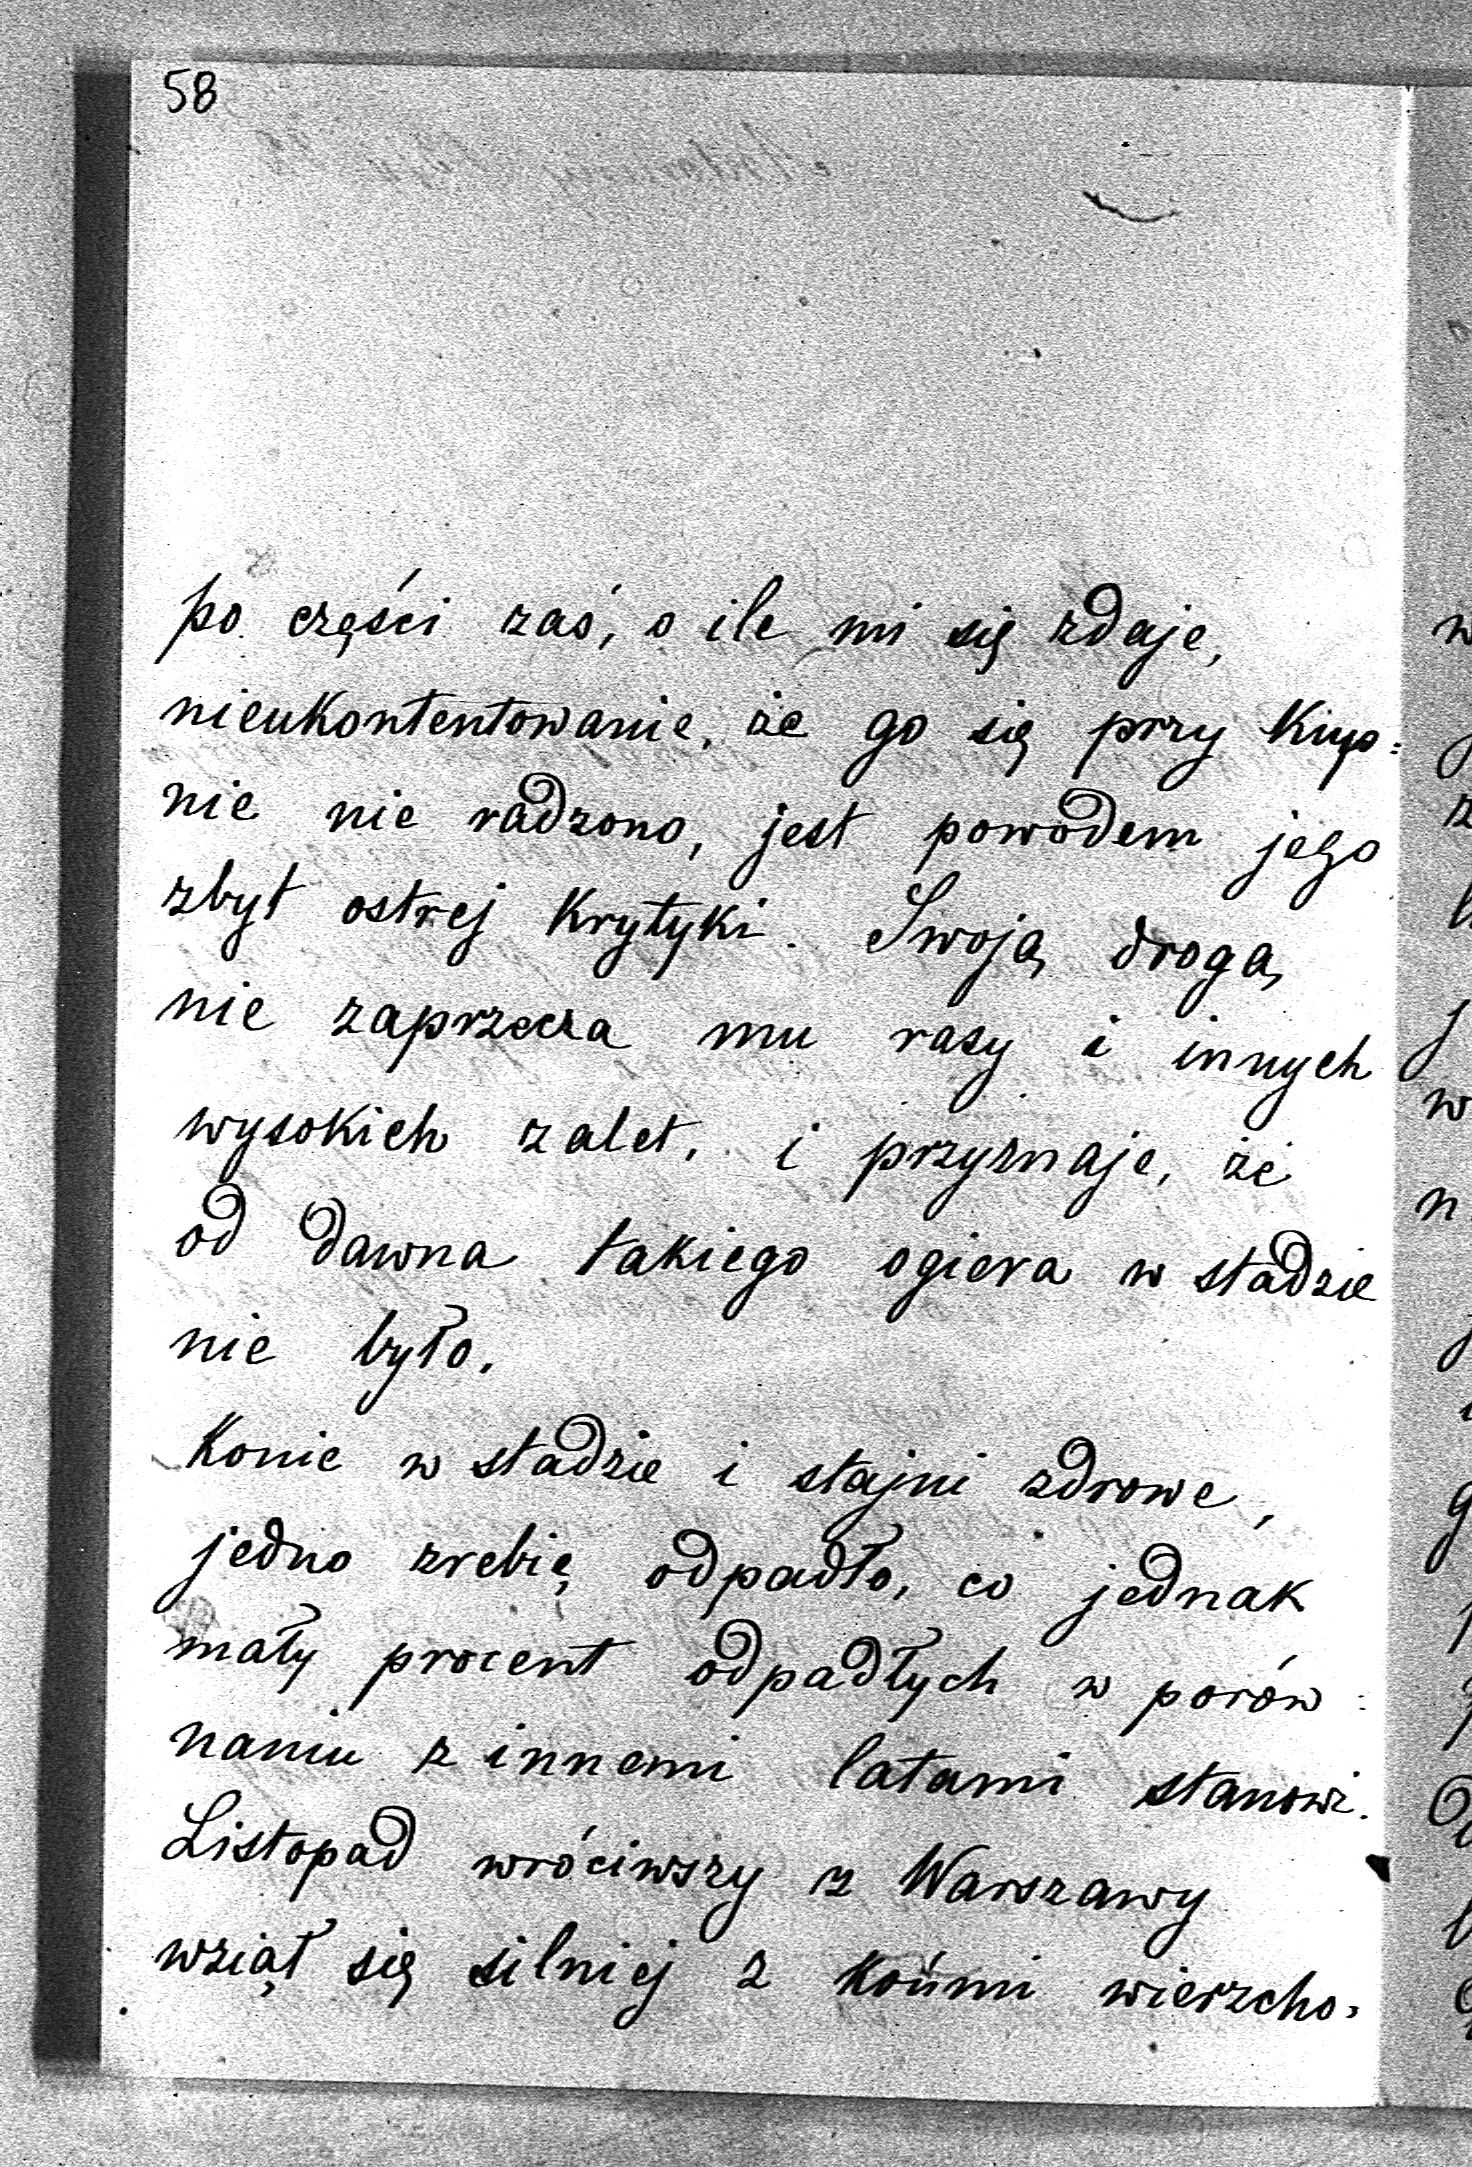 58
po części zaś, o ile mi się zdaje,
nieukontentowanie, że go się przy Kup=
nie nie radzono, jest powodem jego
zbyt ostrej Krytyki. Swoją drogą
nie zaprzecza mu rasy i innych
wysokich zalet, i przyznaje, że
od dawna takiego ogiera w stadzie
nie było.
Konie w stadzie i stajni zdrowe,
jedno zrebię odpadło, co jednak
mały procent odpadłych w porów=
naniu z innemi latami stanowi.
Listopad wróciwszy z Warszawy
wziął się silniej z końmi wierzcho=